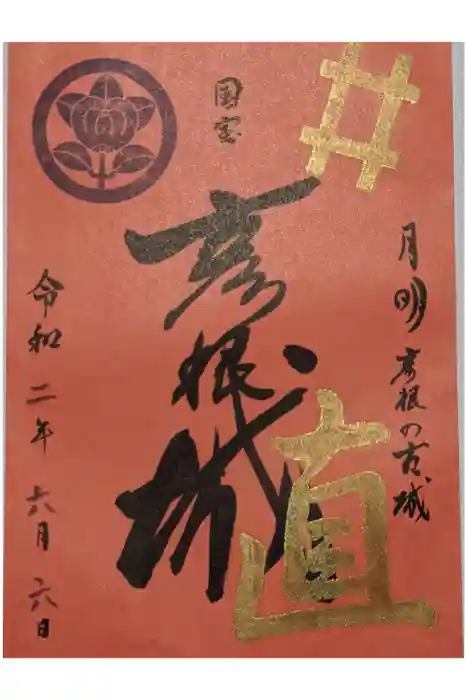 井
月明彦根の古城
国宝
彦根城
直
令和二年六月六日